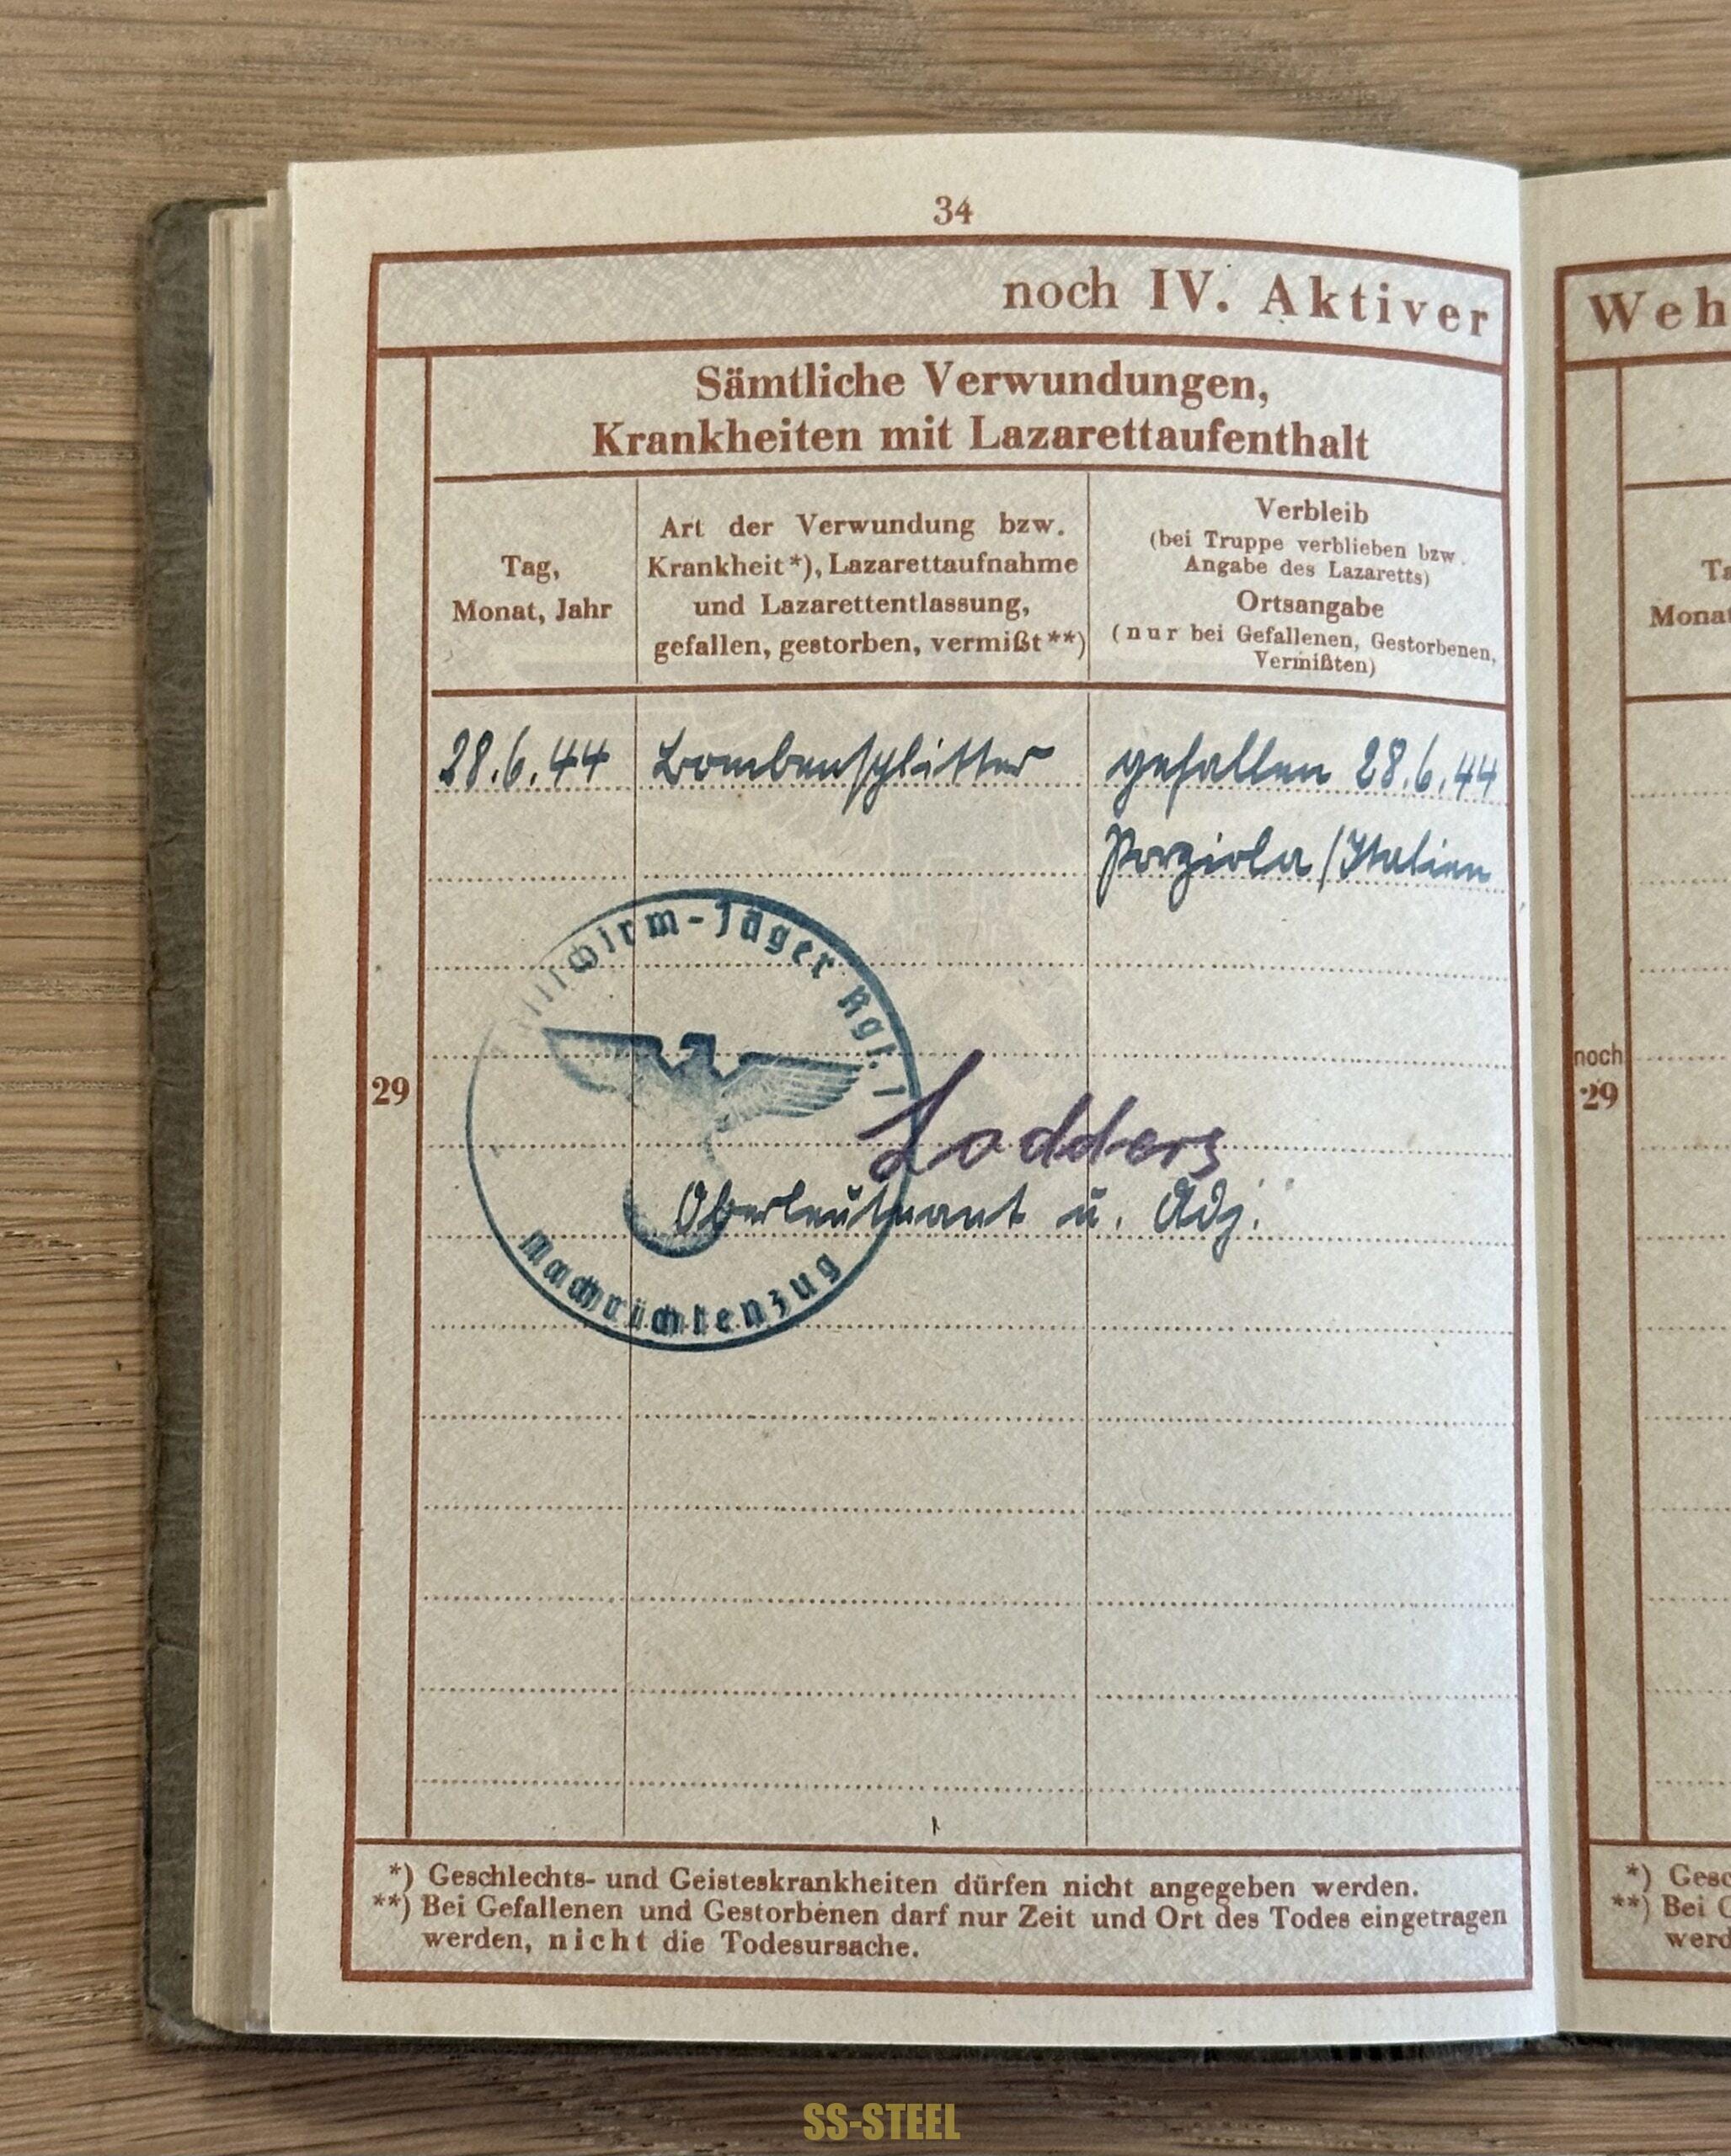 34
noch IV. Aktiver
Sämtliche Verwundungen,
Krankheiten mit Lazarettaufenthalt
Tag,
Monat, Jahr
Art der Verwundung bzw.
Krankheit*), Lazarettaufnahme
und Lazarettentlassung,
gefallen, gestorben, vermißt**)
Verbleib
(bei Truppe verblieben bzw.
Angabe des Lazaretts)
Ortsangabe
(nur bei Gefallenen, Gestorbenen,
Vermißten)
28.6.44 Bombensplitter gefallen 28.6.44
Porziola/Italien
schirm-Jäger Rgt. 1
Nachrichtenzug
29
Lodders
Oberleutnant u. Adj.
*) Geschlechts- und Geisteskrankheiten dürfen nicht angegeben werden.
**) Bei Gefallenen und Gestorbenen darf nur Zeit und Ort des Todes eingetragen
werden, nicht die Todesursache.
Weh
Ta
Monat
noch
29
*) Gesc
**) Bei G
werd
SS-STEEL